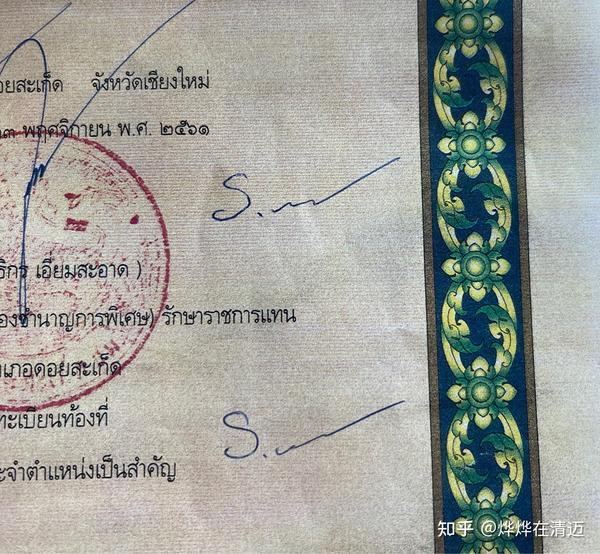 อยสะเก็ด จังหวัดเชียงใหม่
๓ พฤศจิกายน พ.ศ. ๒๕๖๑
ธิกร เอี่ยมสะอาด )
องชำนาญการพิเศษ) รักษาราชการแทน
เภอดอยสะเก็ด
ทะเบียนท้องที่
ะจำตำแหน่งเป็นสำคัญ
知乎 @烨烨在清迈